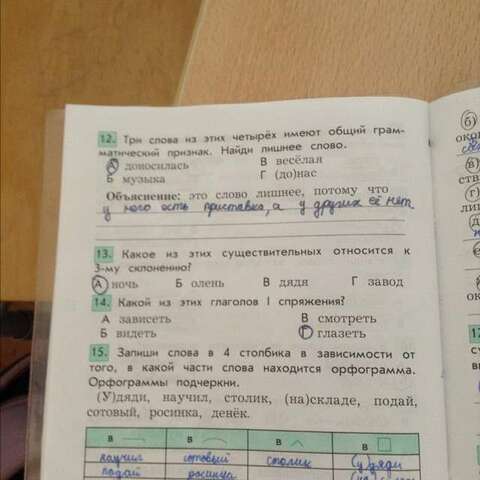 12. Три слова из этих четырёх имеют общий грам-
матический признак. Найди лишнее слово.
А доносилась В весёлая
Б музыка Г (до)нас
Объяснение: это слово лишнее, потому что
у него есть приставка, а у других её нет
13. Какое из этих существительных относится к
3-му склонению?
А ночь Б олень В дядя Г завод
14. Какой из этих глаголов I спряжения?
А зависеть В смотреть
Б видеть Г глазеть
15. Запиши слова в 4 столбика в зависимости от
того, в какой части слова находится орфограмма.
Орфограммы подчеркни.
(У)дяди, научил, столик, (на)складе, подай,
сотовый, росинка, денёк.
в в в в
научил сотовый столик (у)дяди
подай росинка
б)
око
в)
ств
г)
ли
д
ок
12
с
в